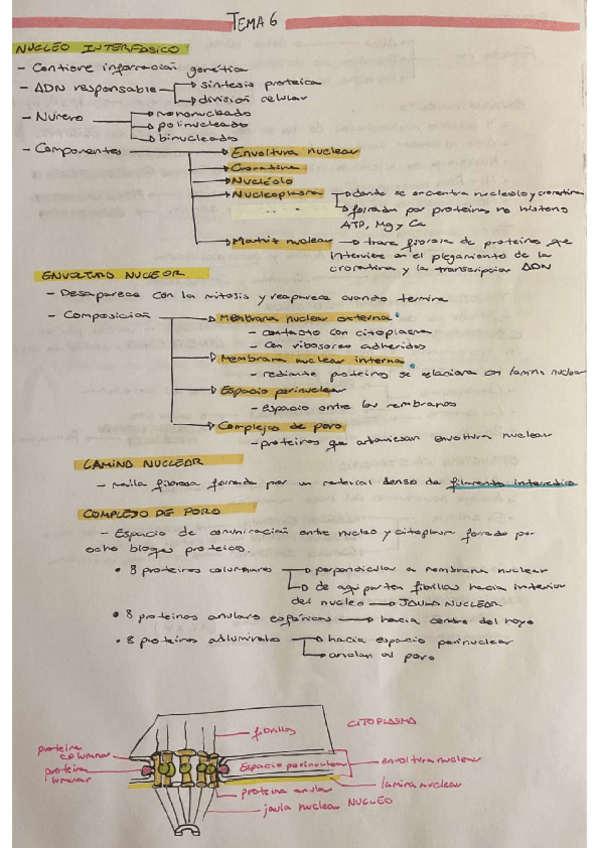 TEMA 6
NUCLEO INTERFASICO
- Contiene información genética
- ADN responsable → síntesis proteica
→ división celular
- Número → mononucleado
→ polinucleados
→ binucleados
- Componentes → Envoltura nuclear
→ Cromatina
→ Nucléolo
→ Nucleoplasma → donde se encuentra nucleolo y cromatina
→ formado por proteínas no histona
ATP, Mg y Ca
→ Matriz nuclear → trama fibrosa de proteínas que
interviene en el plegamiento de la
cromatina y la transcripción ADN
ENVOLTURA NUCLEAR
- Desaparece con la mitosis y reaparece cuando termina
- Composición → Membrana nuclear externa
- contacto con citoplasma
- con ribosomas adheridos
→ Membrana nuclear interna
- mediante proteínas se relaciona con lamina nuclear
→ Espacio perinuclear
- espacio entre las membranas
→ Complejos de poro
- proteínas que atraviesan envoltura nuclear
LAMINA NUCLEAR
- malla fibrosa formada por un material denso de filamento intermedio
COMPLEJO DE PORO
- Espacio de comunicación entre nucleo y citoplasma formado por
ocho bloques proteicos.
• 8 proteínas columnares → perpendicular a membrana nuclear
→ de aquí parten fibrillas hacia interior
del nucleo → JAULA NUCLEAR
• 8 proteínas anulares → hacia centro del
• 8 proteínas adluminales → hacia espacio perinuclear
→ anclan al poro
fibrillas
CITOPLASMA
proteína
columnar
proteína
luminar
Espacio perinuclear
envoltura nuclear
lamina nuclear
proteína anular
jaula nuclear NUCLEO